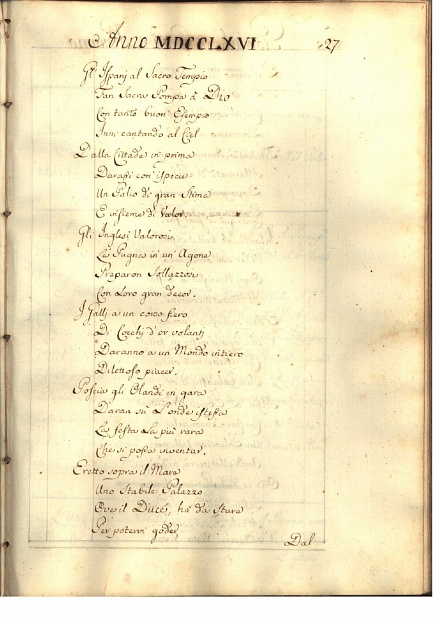 Anno MDCCLXVI 27
Gl' Ispanj al Sacro Tempio
Fan Sacra Pompa à Dio
Con tanto buon Esempio
Inni cantando al Ciel
Dalla Cittade in prima
Darassi con
Un Palio di gran Stima
E insieme di Valor.
Gli Inglesi Valorosi
Le Pugna in un' Agone
Preparon Sollazzosi
Con Loro gran decor.
I Gallj a un corso fiero
Di Cocchj d'or volantj
Daranno a un Mondo intiero
Dilettoso piacer.
Poscia gli Olandi in gara
Daran sù L'onde istesse
La festa La più rara
Che si possa inventar.
Eretto sopra il Mare
Uno Stabile Palazzo
Ove il Duce, hà da Stare
Per potervi goder
Dal